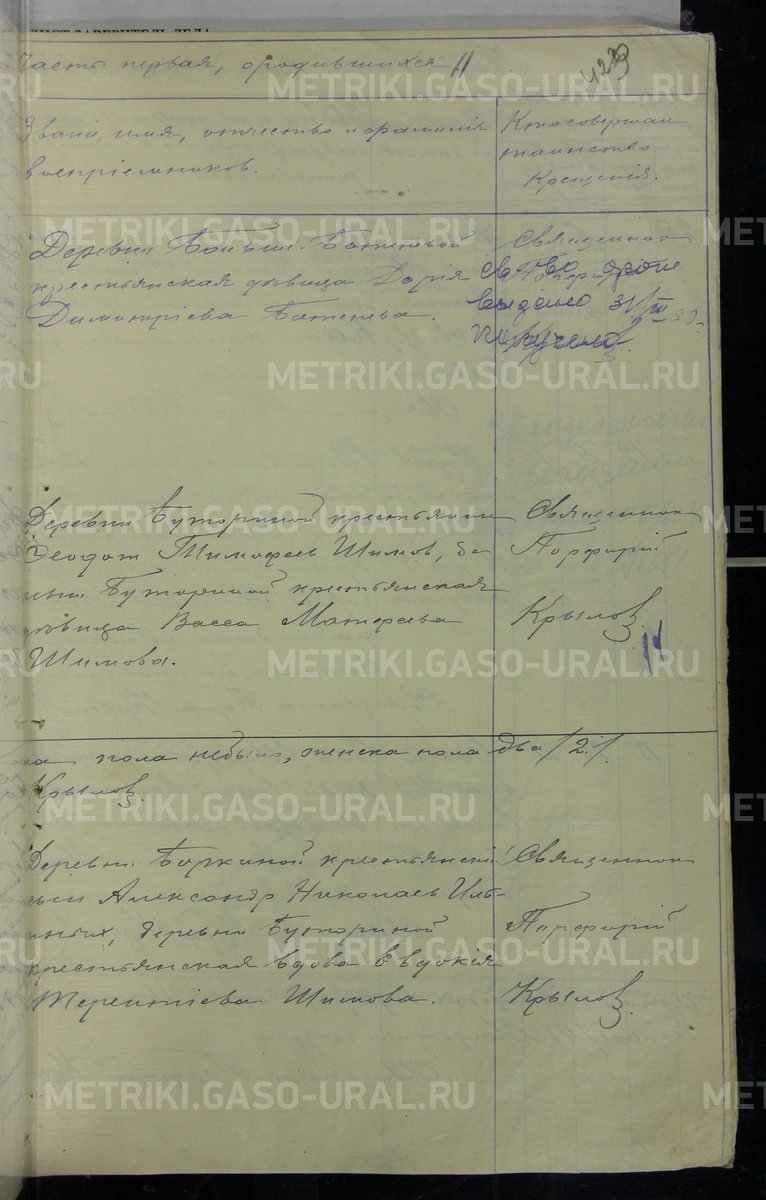 Часть первая, о родившихся 11
Званіе, имя, отчество и фамилія
воспріемниковъ.
Кто совершал
таинство
Крещенія.
Деревни
крестьянская дѣвица Дарія
Димитріева Баженова.
Священник
выдано 31/III
Деревни Буториной крестьянин
Ѳеодот Тимофеев Шимов, де
ревни Буториной крестьянская
дѣвица Васса Матфеева
Шимова.
Священник
Порфирій
Крылов
пола не было, женска пола два /2/.
Крылов.
Деревни Боркиной крестьянскій
сын Александр Николаев Иль-
иных, деревни Буториной
крестьянская вдова Евдокія
Терентіева Шимова.
Священник
Порфирій
Крылов
METRIKI.GASO-URAL.RU